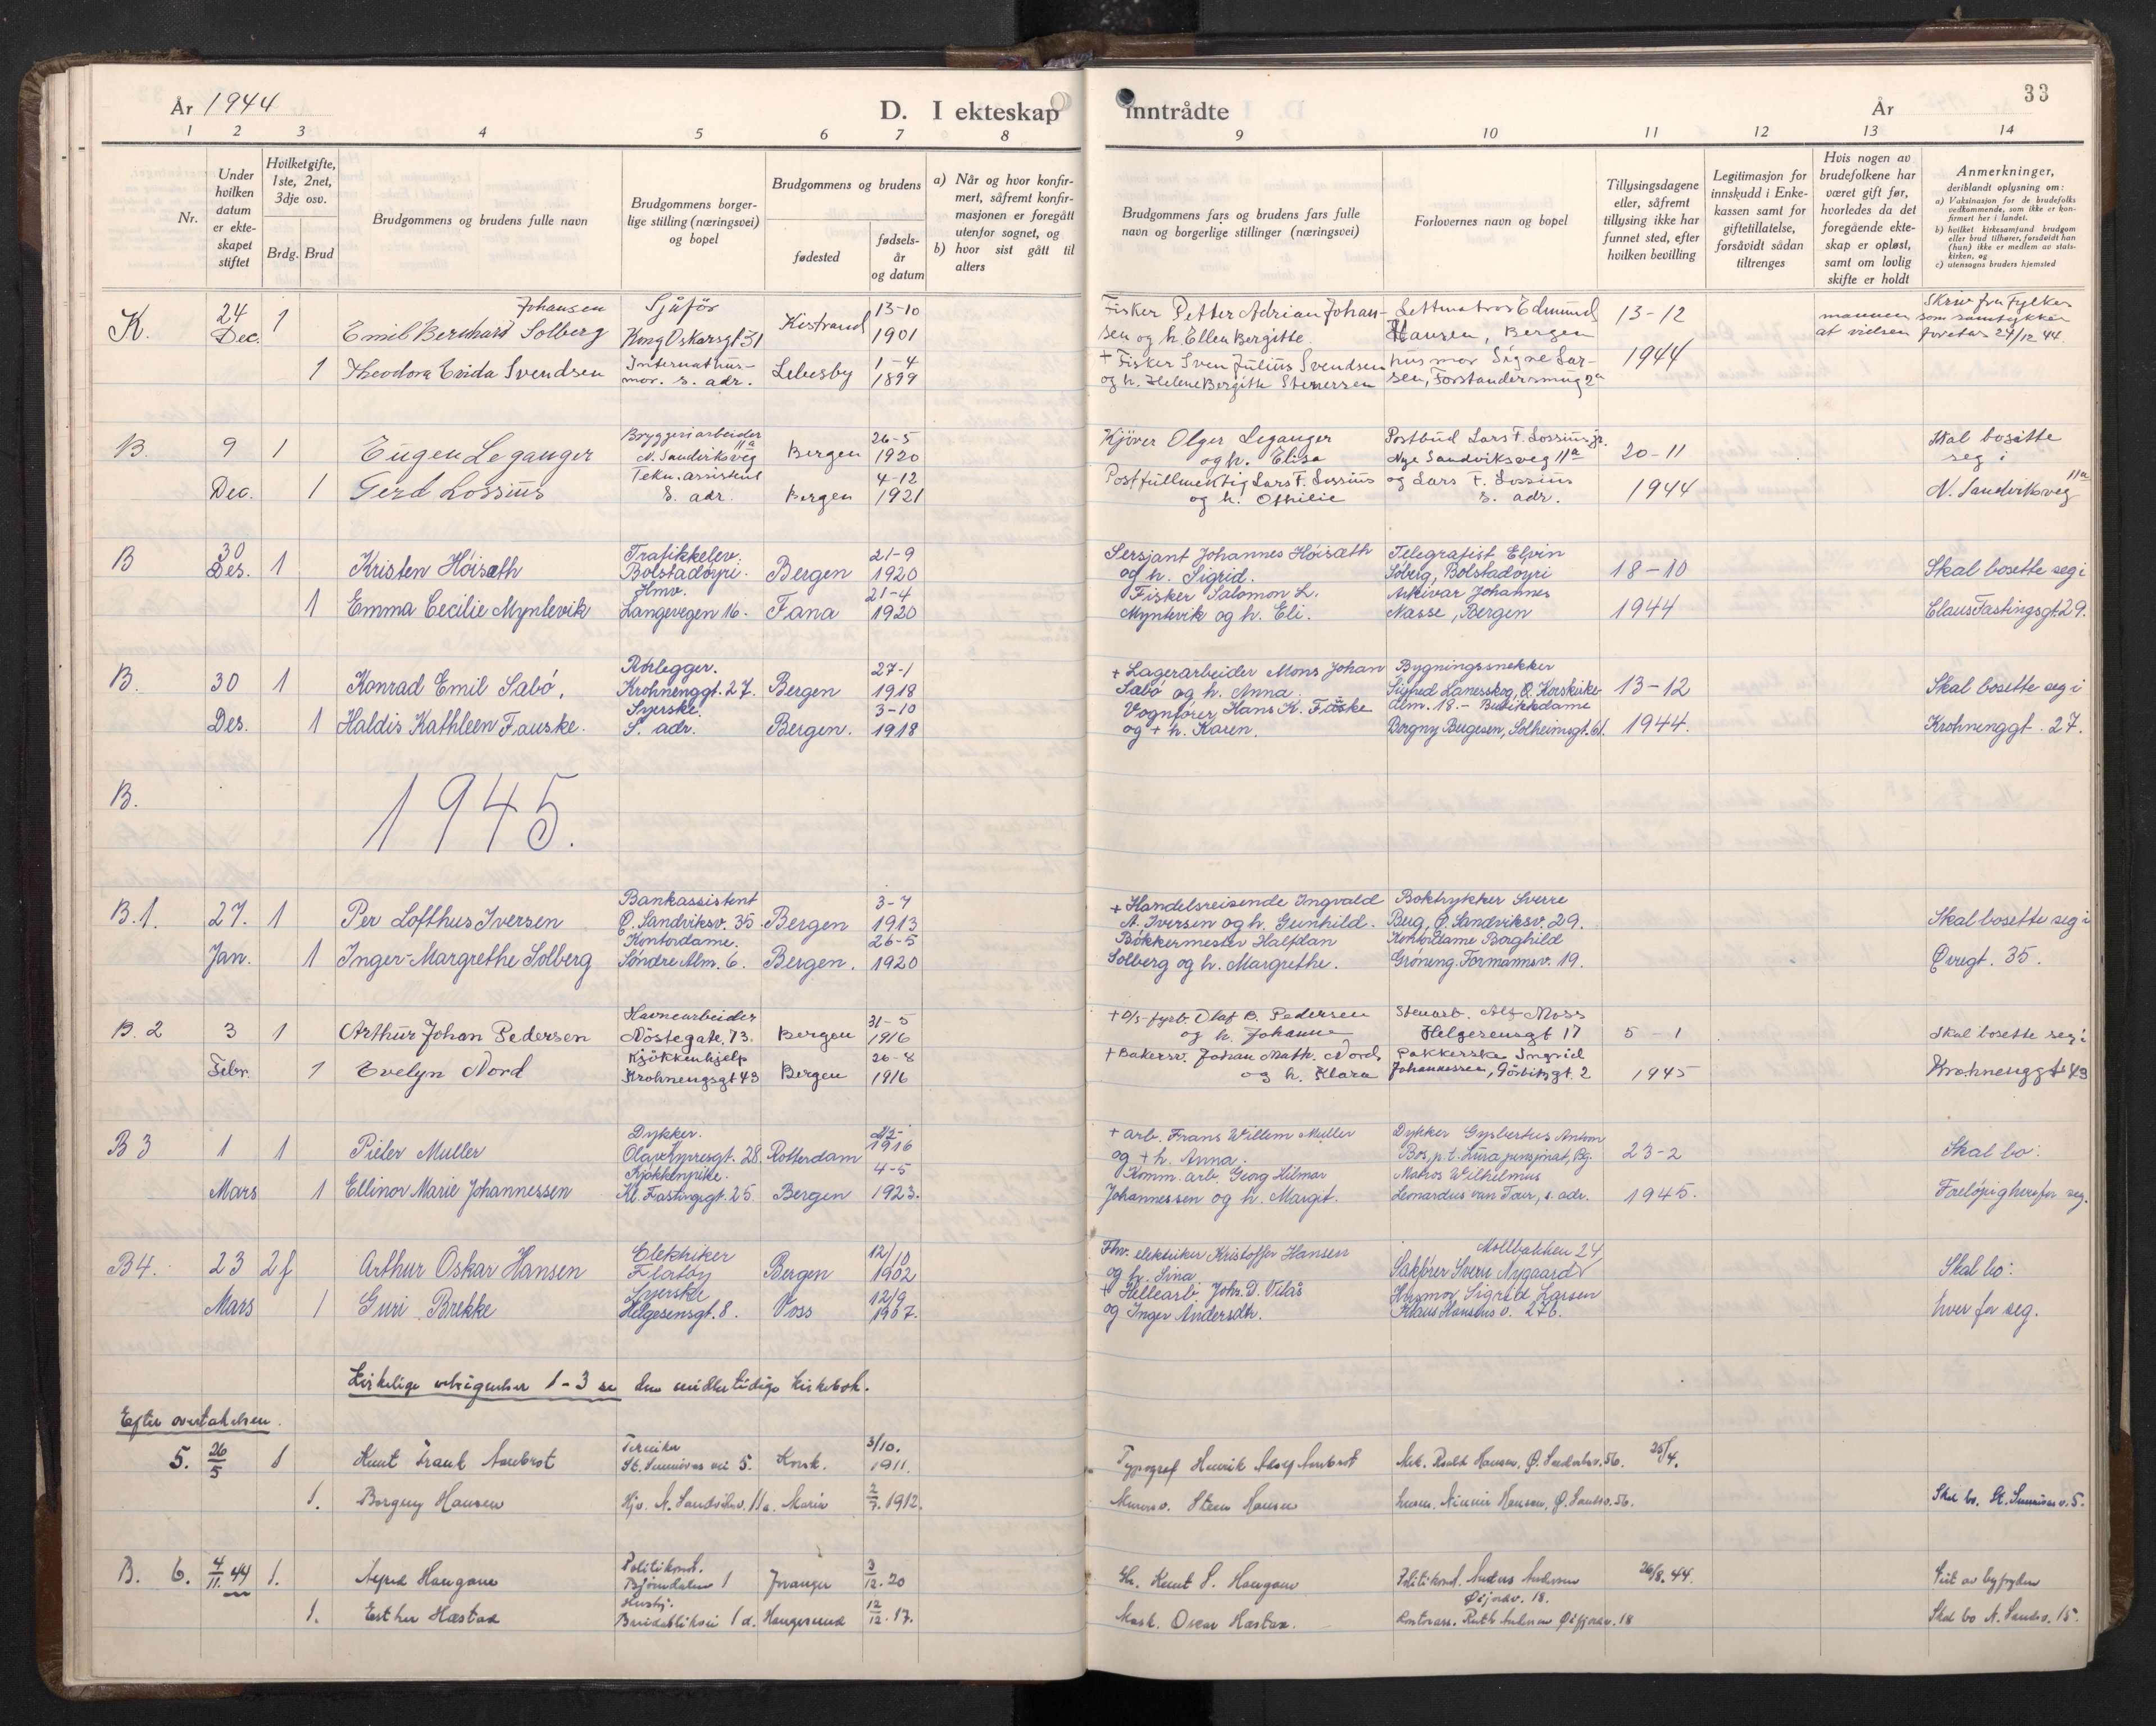 År 1944
D. I ekteskap inntrådte
År
33
1 2 3 4 5 6 7 8 9 10 11 12 13 14
Nr.
Under hvilken datum er ekteskapet stiftet
Hvilket gifte, 1ste, 2net, 3dje osv.
Brdg. Brud
Brudgommens og brudens fulle navn
Brudgommens borgerlige stilling (næringsvei) og bopel
Brudgommens og brudens
fødested
fødselsår og datum
a) Når og hvor konfirmert, såfremt konfirmasjonen er foregått utenfor sognet, og
b) hvor sist gått til alters
Brudgommens fars og brudens fars fulle navn og borgerlige stillinger (næringsvei)
Forlovernes navn og bopel
Tillysingsdagene eller, såfremt tillysing ikke har funnet sted, efter hvilken bevilling
Legitimasjon for innskudd i Enkekassen samt for giftetillatelse, forsåvidt sådan tiltrenges
Hvis nogen av brudefolkene har været gift før, hvorledes da det foregående ekteskap er opløst, samt om lovlig skifte er holdt
Anmerkninger, deriblandt oplysning om:
a) Vaksinasjon for de brudefolks vedkommende, som ikke er konfirmert her i landet.
b) hvilket kirkesamfund brudgom eller brud tilhører, forsåvidt han (hun) ikke er medlem av statskirken, og
c) utensogns bruders hjemsted
K. 24 Dec. 1 Emil Bernhard Johansen Solberg Sjåfør Kong Oskarsgt 31 Kistrand 13-10 1901 Fisker Petter Adrian Johansen og h. Ellen Bergitte. Lettmatros Edmund Hansen, Bergen 13-12 Skriv fra Fylkesmannen som samtykker at vielsen foretas 24/12 44.
1 Theodora Svendsen Internathusmor. s. adr. Lebesby 1-4 1899 + Fisker Sven Julius Svendsen og h. Helene Bergitte Stenersen husmor Signe Larsen, Forstandersmug 2a 1944
B. 9 Dec. 1 Eugen Leganger Bryggeriarbeider N. Sandviksveg 11a Bergen 26-5 1920 Kjører Olger Leganger og h. Elisa Postbud Lars F. Lossius jr. Nye Sandviksveg 11a 20-11 Skal bositte seg i
1 Gerd Lossius Tekn. assistent s. adr. Bergen 4-12 1921 Postfullmektig Lars F. Lossius og h. Othilie og Lars F. Lossius s. adr. 1944 N. Sandviksveg 11a
B 30 Des. 1 Kristen Høisæth Trafikkelev. Bolstadøyri. Bergen 21-9 1920 Sersjant Johannes Høisæth og h. Sigrid. Telegrafist Elvin Søberg, Bolstadøyri 18-10 Skal bosette seg i
1 Emma Cecilie Myntevik Hmv. Langevegen 16. Fana 21-4 1920 Fisker Salomon L. Myntevik og h. Eli. Arkivar Johannes Nasse, Bergen 1944 Claus Fastingsgt. 29.
B. 30 Des. 1 Konrad Emil Sæbø. Rørlegger. Krohnenggt. 27. Bergen 27-1 1918 + Lagerarbeider Mons Johan Sæbø og h. Anna. Bygningssnekker Sigfred Lanesskog, Ø. Korskirke- 13-12 Skal bosette seg i
1 Haldis Kathleen Fauske. Syerske. S. adr. Bergen. 3-10 1918 Vognfører Hans K. Fauske og + h. Karen. alm. 18. - Butikkdame Borgny Børgesen, Solheimsgt. 61. 1944. Krohnenggt. 27.
B. 1945.
B.1. 27. Jan. 1 Per Lofthus Iversen Bankassistent Ø. Sandviksv. 35 Bergen 3-7 1913 + Handelsreisende Ingvald A. Iversen og h. Gunhild. Boktrykker Sverre Berg, Ø. Sandviksv. 29. Skal bosette seg i
1 Inger-Margrethe Solberg Kontordame. Søndre Alm. 6. Bergen. 26-5 1920 Bøkkermester Halfdan Solberg og h. Margrethe. Kontordame Borghild Grøneng. Formannsv. 19. Øvregt. 35.
B. 2 3 Febr. 1 Arthur Johan Pedersen Havnearbeider Nøstegate 73. Bergen 31-5 1916 + D/s-fyrb. Olaf B. Pedersen og h. Johanne Stenarb. Alf Moss Helgesensgt 17 5-1 Skal bosette seg i
1 Evelyn Nord Kjøkkenhjelp Krohnengsgt 43 Bergen 26-8 1916 + Bakersv. Johan Math. Nord og h. Klara Pakkerske Ingrid Johannessen, Görbitzgt. 2 1945 Krohnenggt 43
B 3 1 Mars 1 Pieter Muller Dykker. Olav Kyrresgt. 28. Rotterdam 1916 + arb. Frans Willem Muller og + h. Anna. Dykker Gysbertus Anton Bos, p.t. Lura pensjonat, Bg. 23-2 Skal bo:
1 Ellinor Marie Johannessen Kjøkkenpike. Kl. Fastingsgt. 25 Bergen 4-5 1923. Komm. arb. Georg Hilmar Johannessen og h. Margit. Matros Wilhelmus Leonardus van Tour, s. adr. 1945. Foreløpig hver for seg.
B4. 23 Mars 2 f Arthur Oskar Hansen Elektriker Florøy Bergen 12/10 1902 Fhv. elektriker Kristoffer Hansen og h. Sina. Møllbakken 24 Sakfører Sverre Nygaard Skal bo:
1 Guri Brekke Syerske Helgesensgt. 8. Voss 12/9 1907. + Hellearb. Johs. D. Vilås og Inger Andersdtr. Husmor Sigrid Larsen Klaus Hansens v. 27b. hver for seg.
Kirkelige velsignelser 1-3 se den midlertidige kirkebok.
Efter overtakelsen.
5. 26/5 1 Knut Frank St. Sunnivas vei 5. Korsk. 3/10. 1911. Typograf Henrik Hansen, Ø. Sandviksv. 56. 25/4.
1. Borgny Hansen Hjv. N. Sandviksv. 11a. Maria 2/7. 1912. Steen Hansen Hansen, Ø. Sandv. 56. Skal bo. St. Sunnivas v. 5.
B. 6. 4/11. 44 1. Haugane Politikonst. Bjørndalen 1 3/12. 20 Knut S. Haugane Politikonst. Anders Andersen Øyjordv. 18. 26/8. 44.
1. Esther Hæstad Husbj. Breidabliksvei 1 d. Haugesund 12/12. 17. Mask. Oscar Hæstad. Kontorass. Ruth Øyjordv. 18 Skal bo N. Sandv. 15.